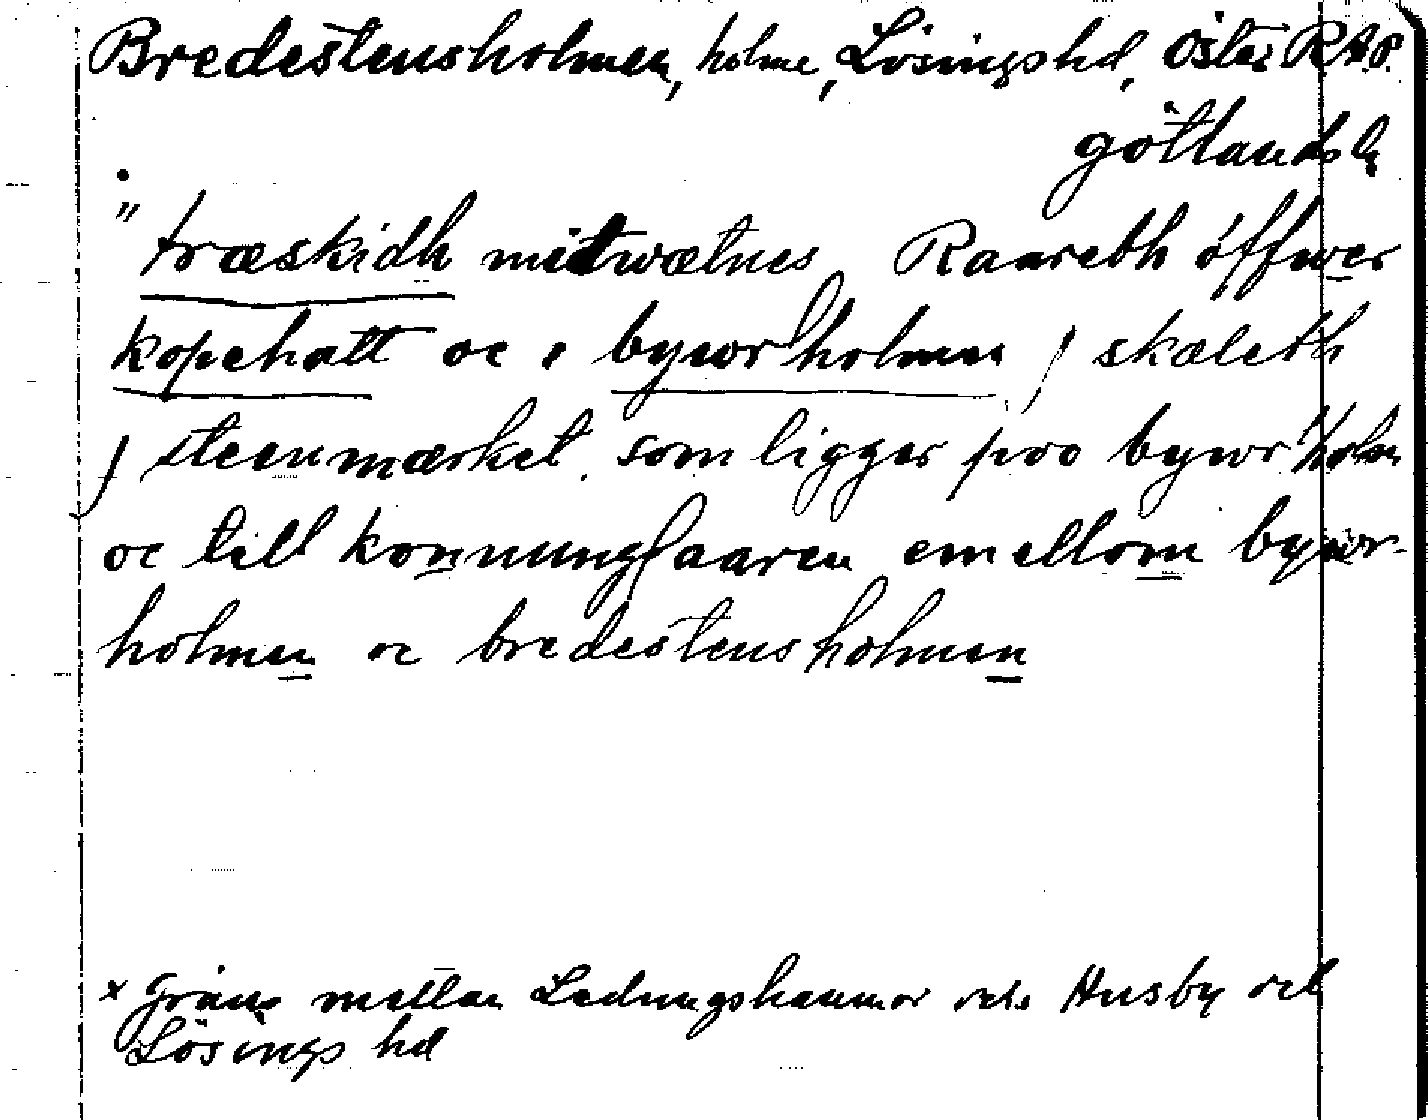 Bredestensholmen, holme, Lösings hd, Öster RAP.
götlands l.
" træskidh mitwætnes Raareth öffwer
kopehatt oc i bywrholmen j skæleth
j steenmærket som ligger poo bywrholm
oc till konnungsaaren emellom bywr-
holmen oc bredestensholmen
x gräns mellan Ledungshammar och Husby och
Lösings hd